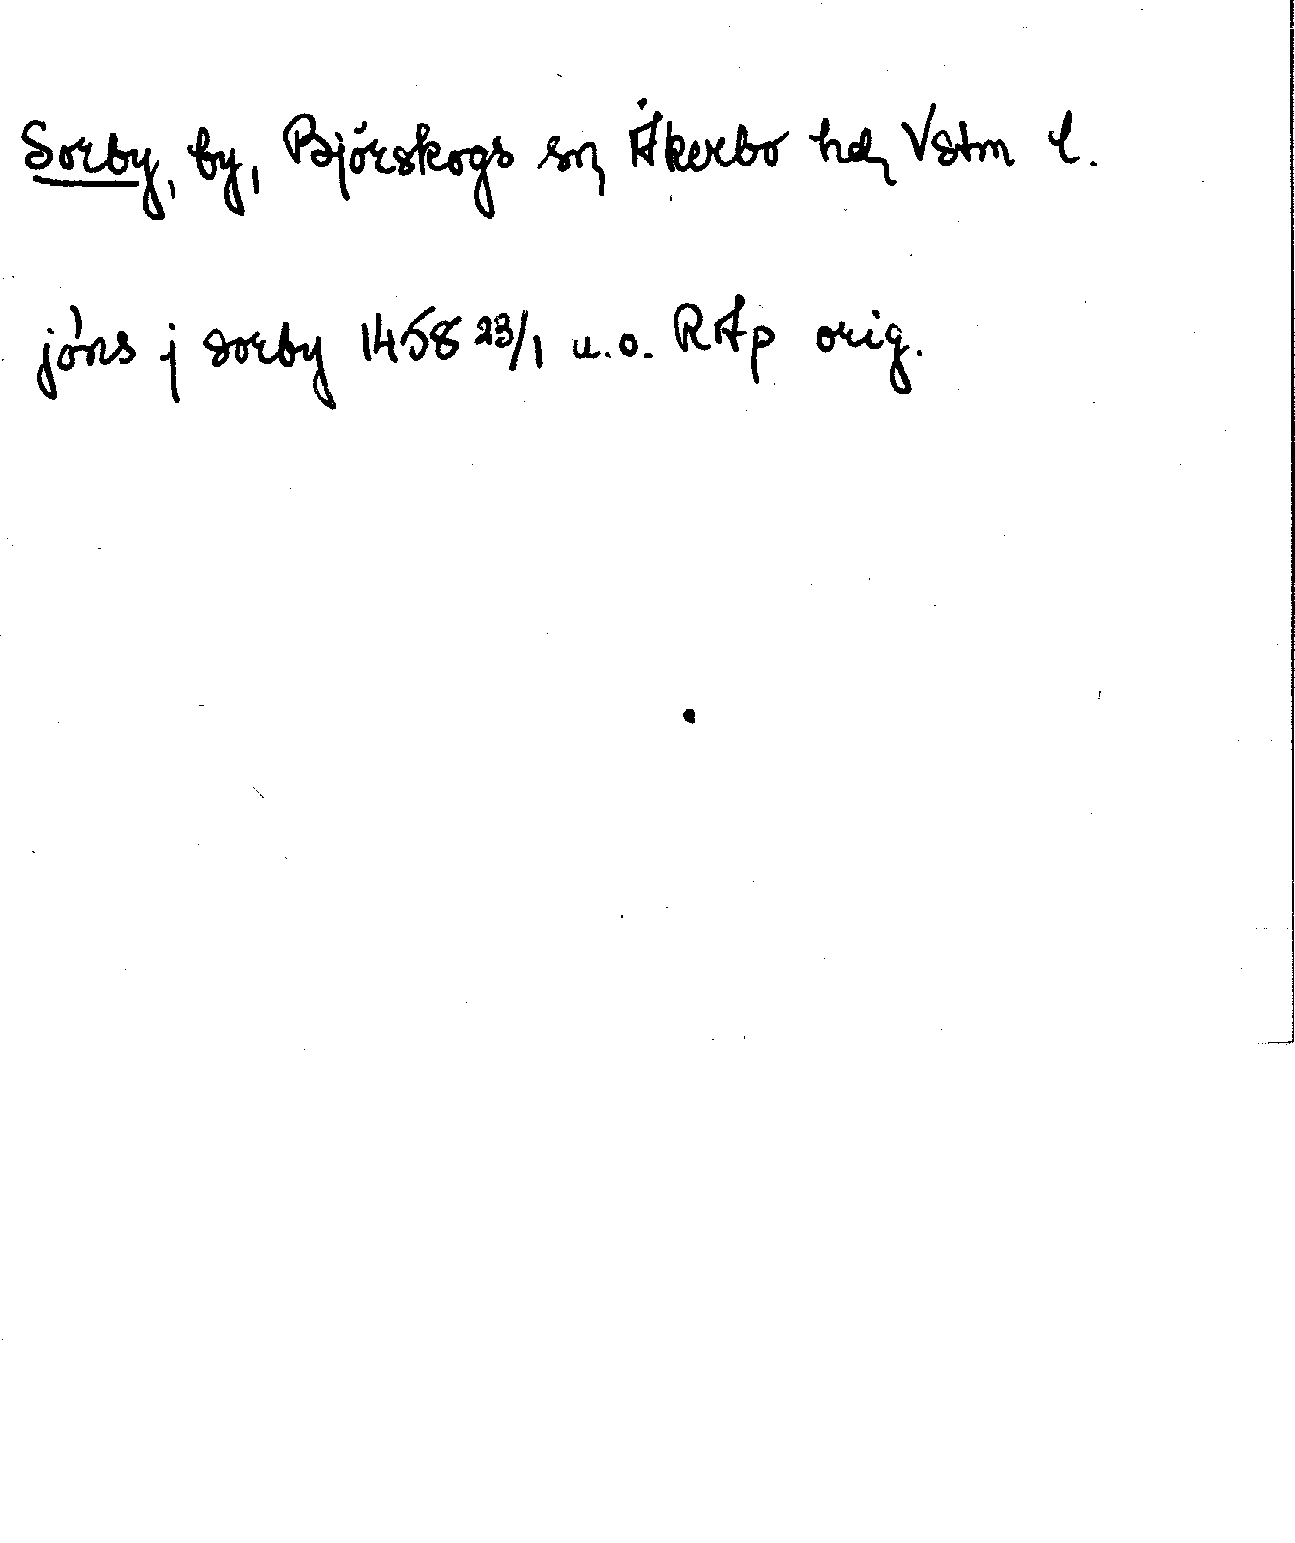 Sorby, by, Björskogs sn, Åkerbo hd, Vstm l.
jöns j sorby 1458 23/1 u.o. RAp orig.